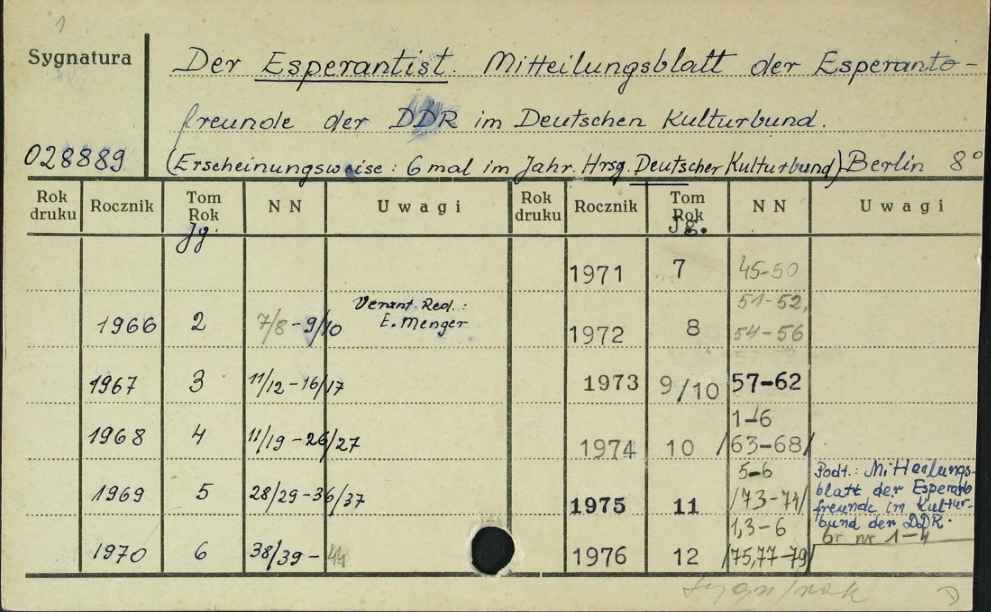 1
Sygnatura
Der Esperantist. Mitteilungsblatt der Esperanto-
freunde der DDR im Deutschen Kulturbund.
028889
(Erscheinungsweise: 6 mal im Jahr. Hrsg. Deutscher Kulturbund) Berlin 8°
Rok druku Rocznik Tom Rok Jg. NN Uwagi Rok druku Rocznik Tom Rok Jg. NN Uwagi
1966 2 7/8-9/10 Verant. Red.: E. Menger
1967 3 11/12-16/17
1968 4 11/19-26/27
1969 5 28/29-36/37
1970 6 38/39-44
1971 7 45-50
1972 8 51-52, 54-56
1973 9/10 57-62
1974 10 1-6 /63-68/
1975 11 5-6 /73-74/ Podt.: Mitteilungs-
blatt der Esperanto
freunde im Kultur-
bund der DDR.
1976 12 1,3-6 /75,77-79/ br nr 1-4